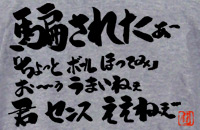 騙されたぁ〜
「ちょっと ボール ほってみぃ」
お〜う うまいねぇ
君 センス ええねぇ〜